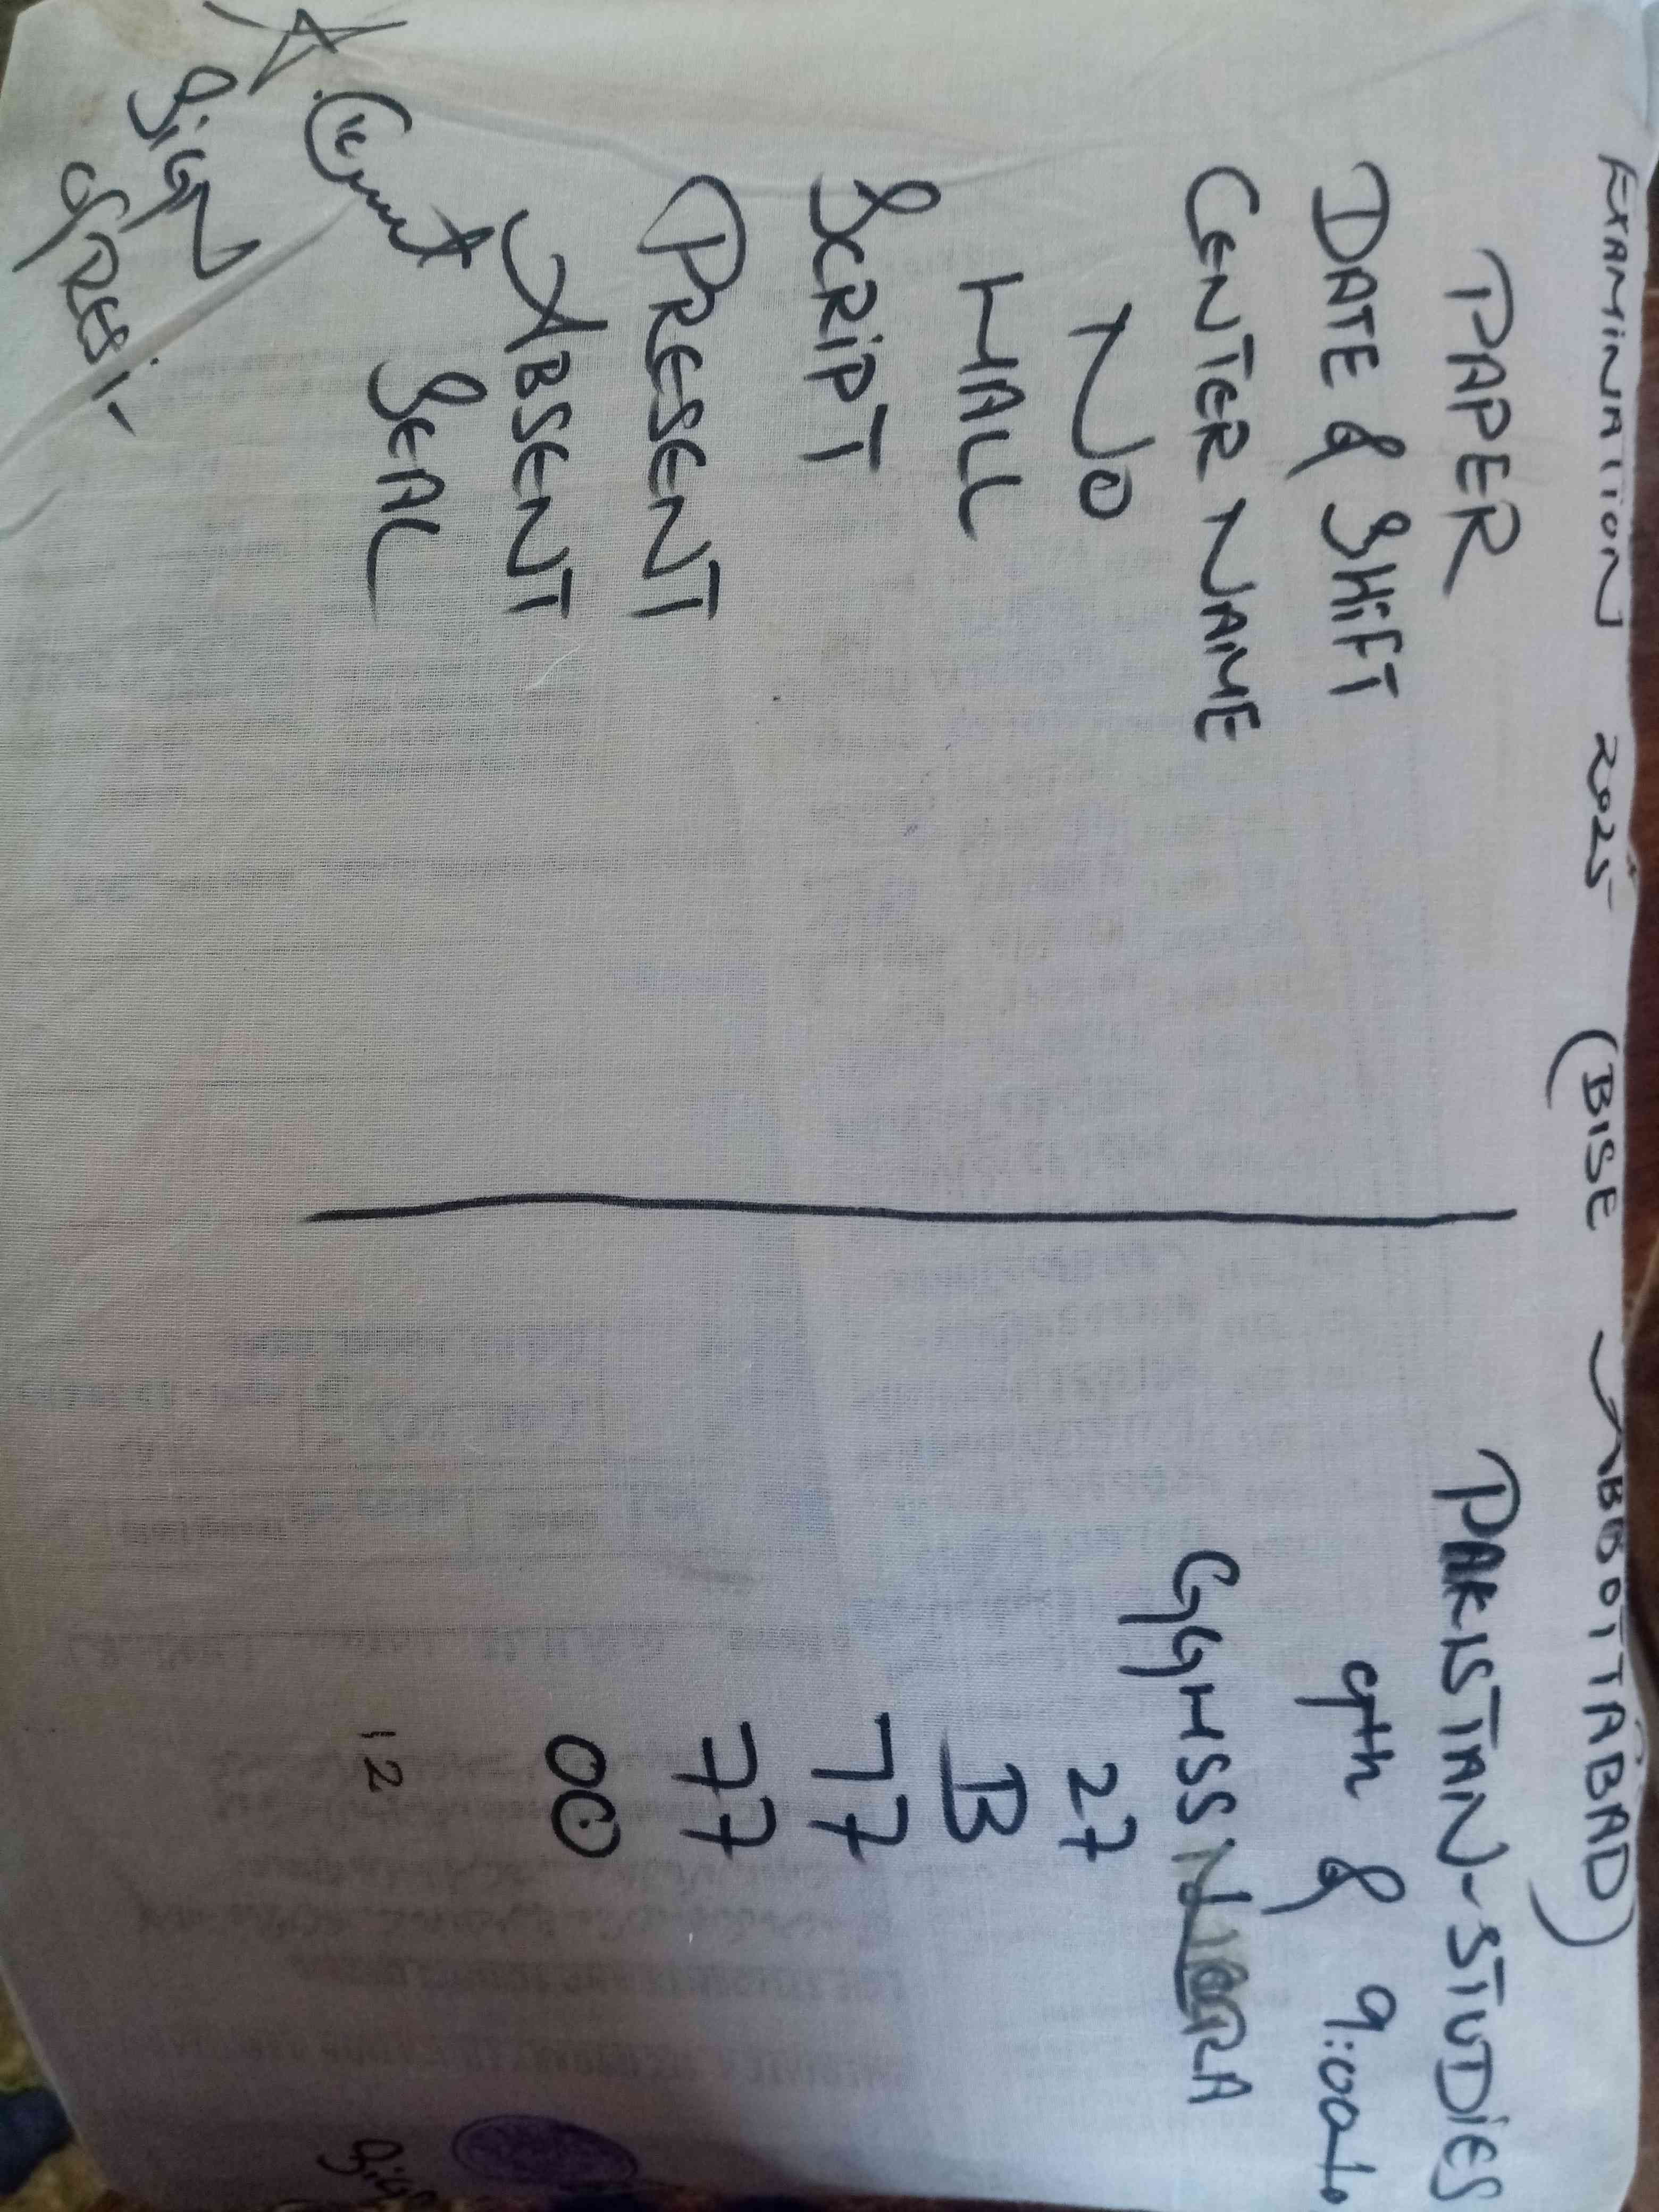 EXAMINATION 2025 (BISE ABBOTTABAD)
PAPER PAKISTAN-STUDIES
DATE & SHIFT 9th & 9:00
CENTER NAME GGHSS
NO 27
HALL B
SCRIPT 77
PRESENT 77
ABSENT 00
SEAL 12
SIGN